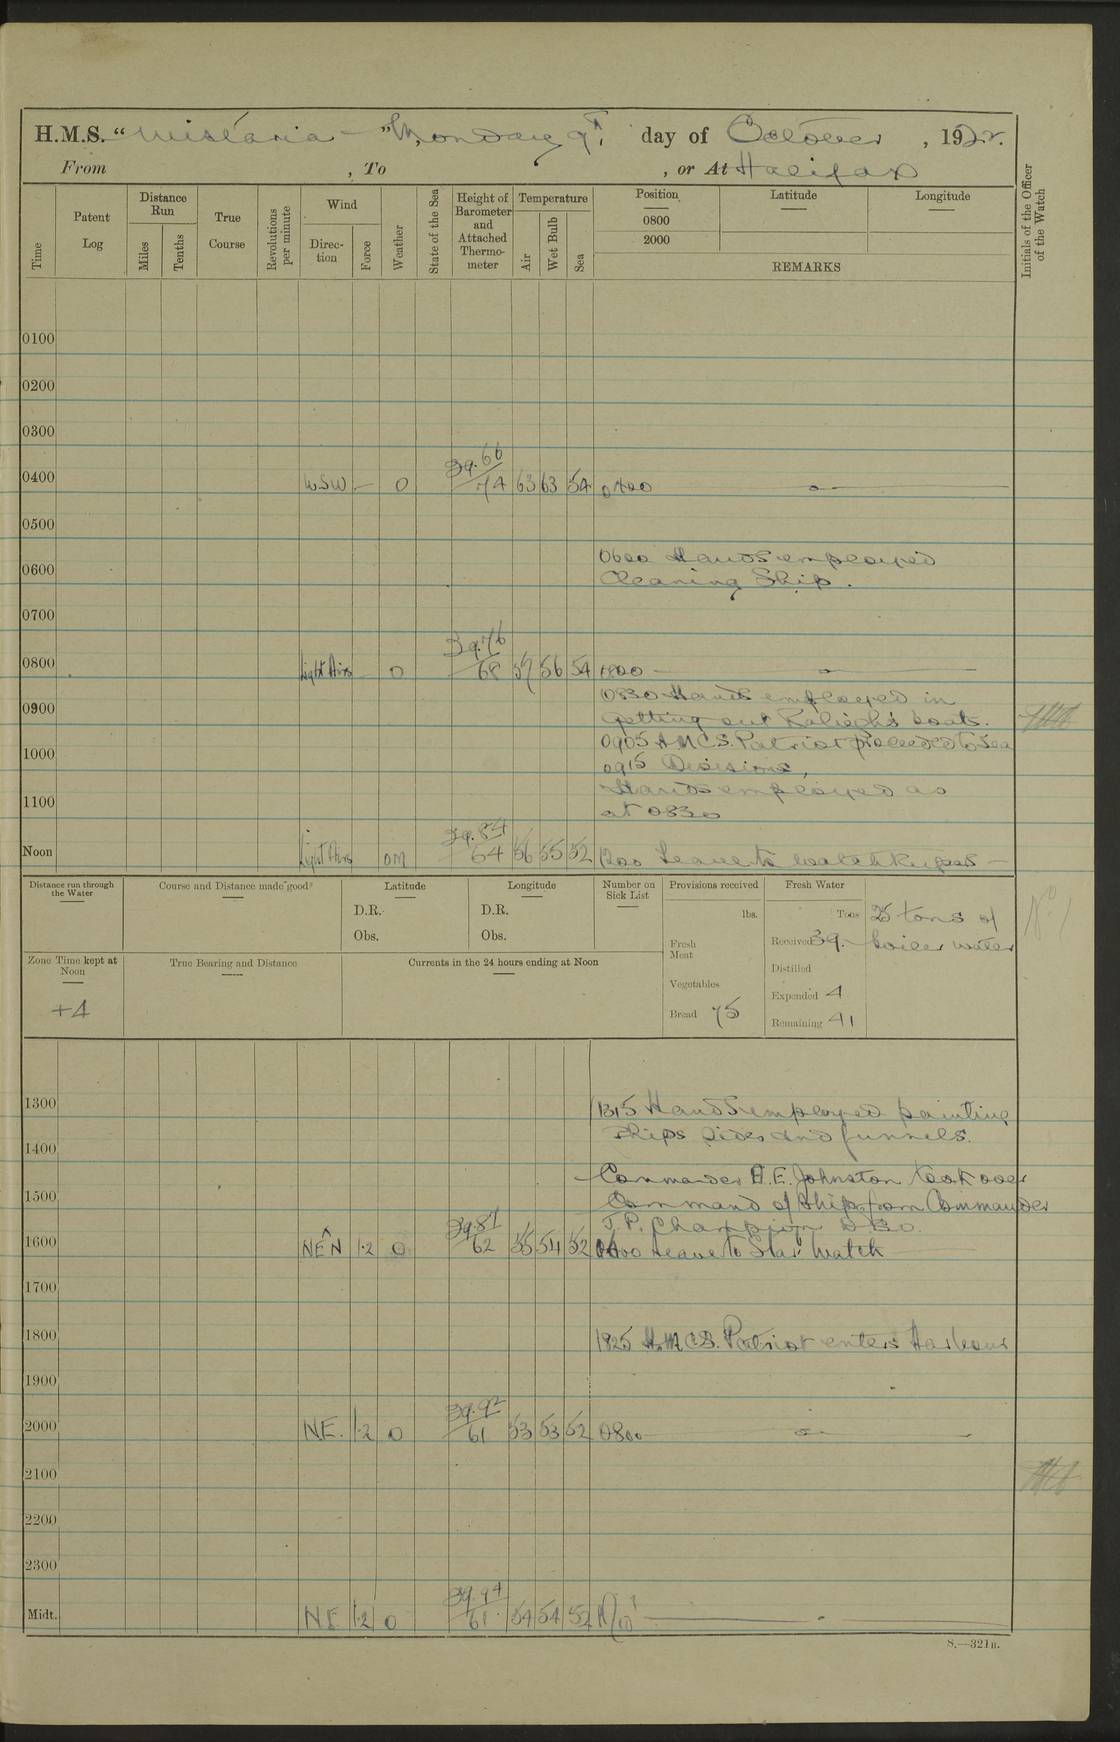 H.M.S. “Wistaria — ” Monday 9th. day of October, 1922.
From , To , or At Halifax
Time
Patent Log
Distance Run
Miles
Tenths
True Course
Revolutions per minute
Wind
Direction
Force
Weather
State of the Sea
Height of Barometer and Attached Thermometer
Temperature
Air
Wet Bulb
Sea
Position
0800
2000
Latitude
Longitude
REMARKS
Initials of the Officer of the Watch
0100
0200
0300
0400 WSW — 0 29.66/74 63 63 54 0400
0500
0600 0600 Hands employed
Cleaning Ship.
0700
0800 Light Airs — 0 29.76/68 57 56 54
0830 Hands employed in
0900 getting out Raliegh's boats.
0905 HMCS. Patriot proceeded to Sea
1000 0915 Divisions,
Hands employed as
1100 at 0830
Noon Light Airs om 29.84/64 56 55 52 1200 Leave to
Distance run through the Water
Course and Distance made good
Latitude
D.R.
Obs.
Longitude
D.R.
Obs.
Number on Sick List
Provisions received
lbs.
Fresh Meat
Vegetables
Bread 75
Fresh Water
Tons
Received 39.
Distilled
Expended 4
Remaining 41
25 tons of
boiler water
No 1
Zone Time kept at Noon
+4
True Bearing and Distance
Currents in the 24 hours ending at Noon
1300 1315 Hands employed painting
ships sides and funnels.
1400
Commander E.E. Johnston took over
1500 Command of Ship from Commander
J.P. Champion D.S.O.
1600 NEN 1.2 0 29.87/62 55 54 52 1600 Leave to Star: Watch
1700
1800 1825 H.M.C.S. Patriot enters Harbour
1900
2000 NE. 1.2 0 29.92/61 53 53 52 0800
2100
2200
2300
Midt. NE 1.2 0 29.94/61 54 54 52
S.—321B.